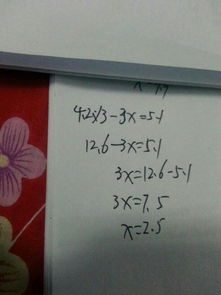 4.2×3-3x=5.1
12.6-3x=5.1
3x=12.6-5.1
3x=7.5
x=2.5